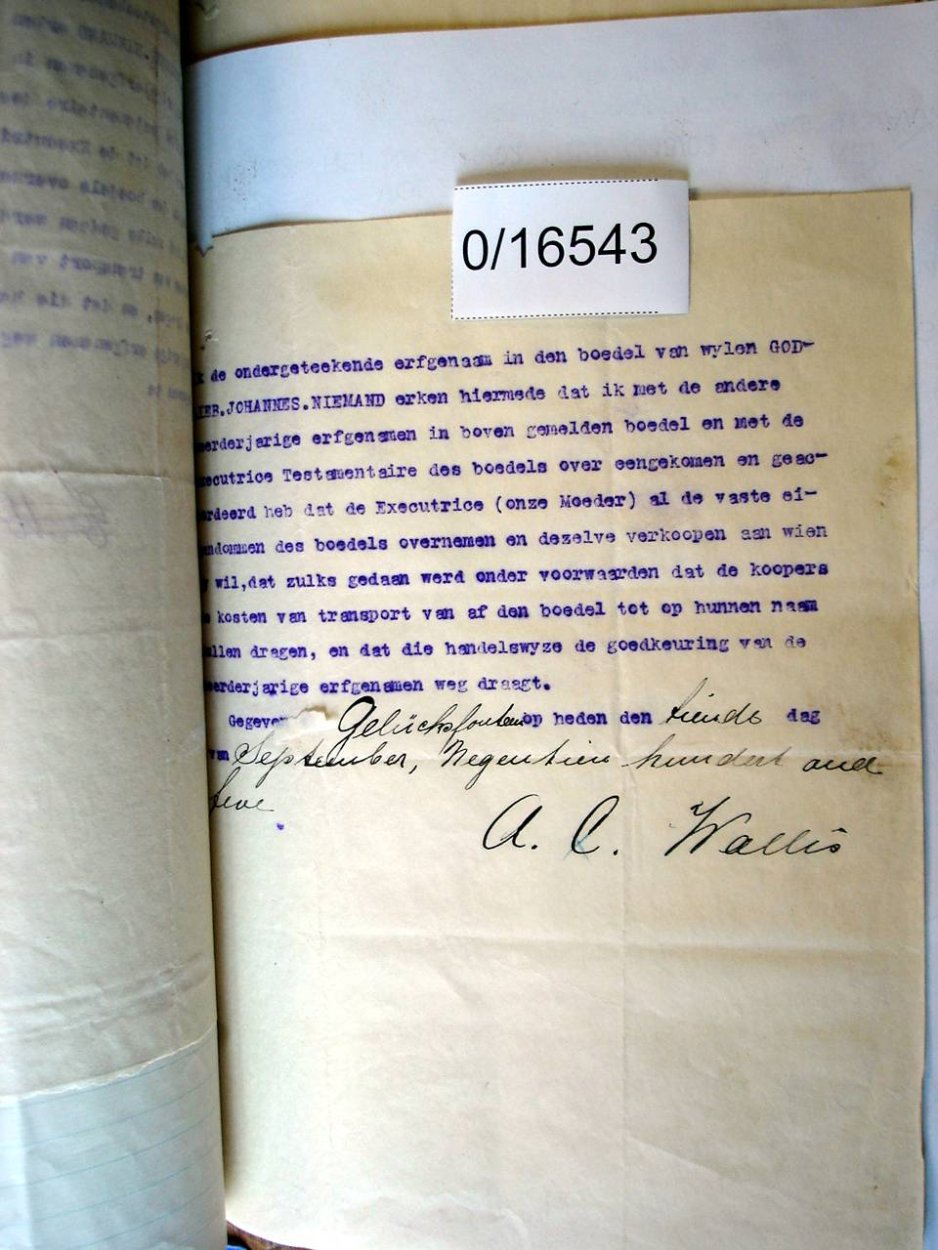 0/16543
k de ondergeteekende erfgenaam in den boedel van wylen GOD-
IEB.JOHANNES.NIEMAND erken hiermede dat ik met de andere
eerderjarige erfgenamen in boven gemelden boedel en met de
xecutrice Testamentaire des boedels over eengekomen en geac-
ordeerd heb dat de Executrice (onze Moeder) al de vaste ei-
endommen des boedels overnemen en dezelve verkoopen aan wien
y wil,dat zulks gedaan werd onder voorwaarden dat de koopers
e kosten van transport van af den boedel tot op hunnen naam
ullen dragen, en dat die handelswyze de goedkeuring van de
eerderjarige erfgenamen weg draagt.
Gegeven Gelücksfontein op heden den tiende dag
van September, Negentien hundert and
A. C. Wallis